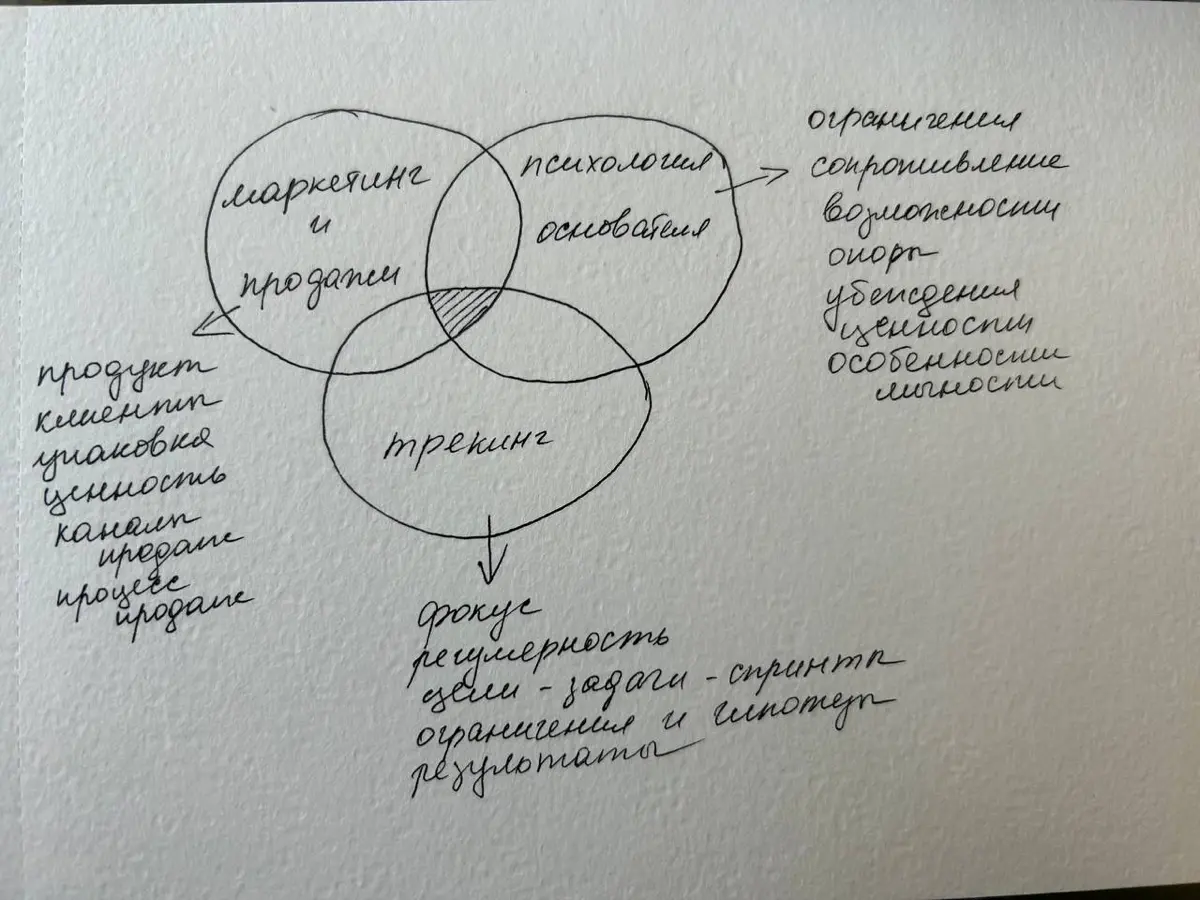 маркетинг
и
продажи
психология
основателя
трекинг
ограничения
сопротивление
возможности
опоры
убеждения
ценности
особенности
личности
продукт
клиенты
упаковка
ценность
каналы
продаж
процесс
продаж
фокус
регулярность
цели - задачи - спринты
ограничения и гипотезы
результаты